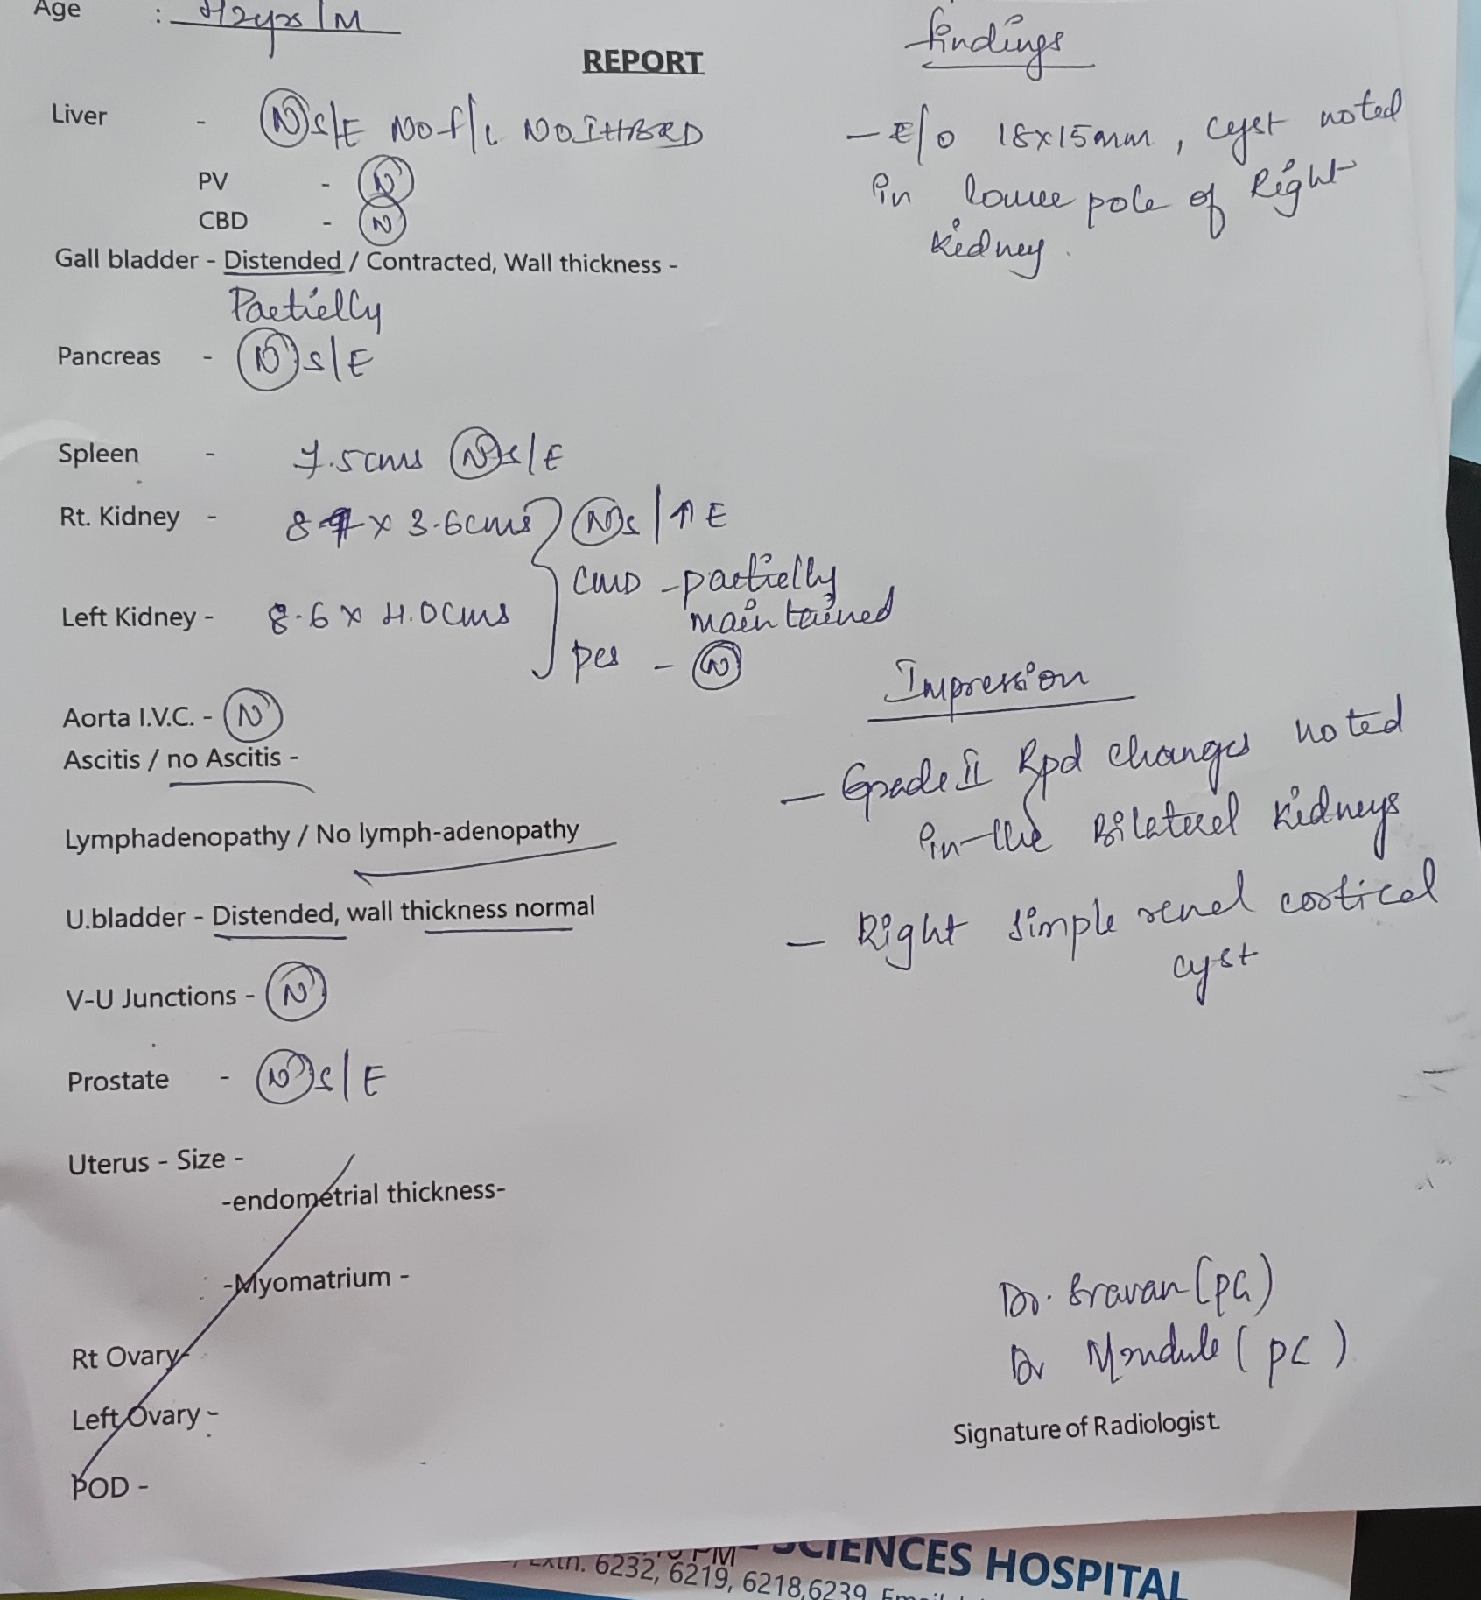 Age : 42yrs / M
REPORT
Liver - (N) S/E No f/L NO IHBRD
PV - (N)
CBD - (N)
Gall bladder - Distended / Contracted, Wall thickness -
Partielly
Pancreas - (N) S/E
Spleen - 7.5cms (N) S/E
Rt. Kidney - x 3.6cms (N) S / ↑ E
CMD - partielly
maintained
Left Kidney - 8.6 x 4.0cms
pcs - (N)
Aorta I.V.C. - (N)
Ascitis / no Ascitis -
Lymphadenopathy / No lymph-adenopathy
U.bladder - Distended, wall thickness normal
V-U Junctions - (N)
Prostate - (N) S/E
Uterus - Size -
-endometrial thickness-
-Myomatrium -
Rt Ovary-
Left Ovary -
POD -
findings
- E/o 18x15mm, cyst noted
in lower pole of Right
kidney.
Impression
- Grade II Rpd changes noted
in the Bilaterel kidneys
- Right simple renel cortical
cyst
Dr. Sravan (PG)
Dr
Signature of Radiologist
SCIENCES HOSPITAL
Extn. 6232, 6219, 6218,6239